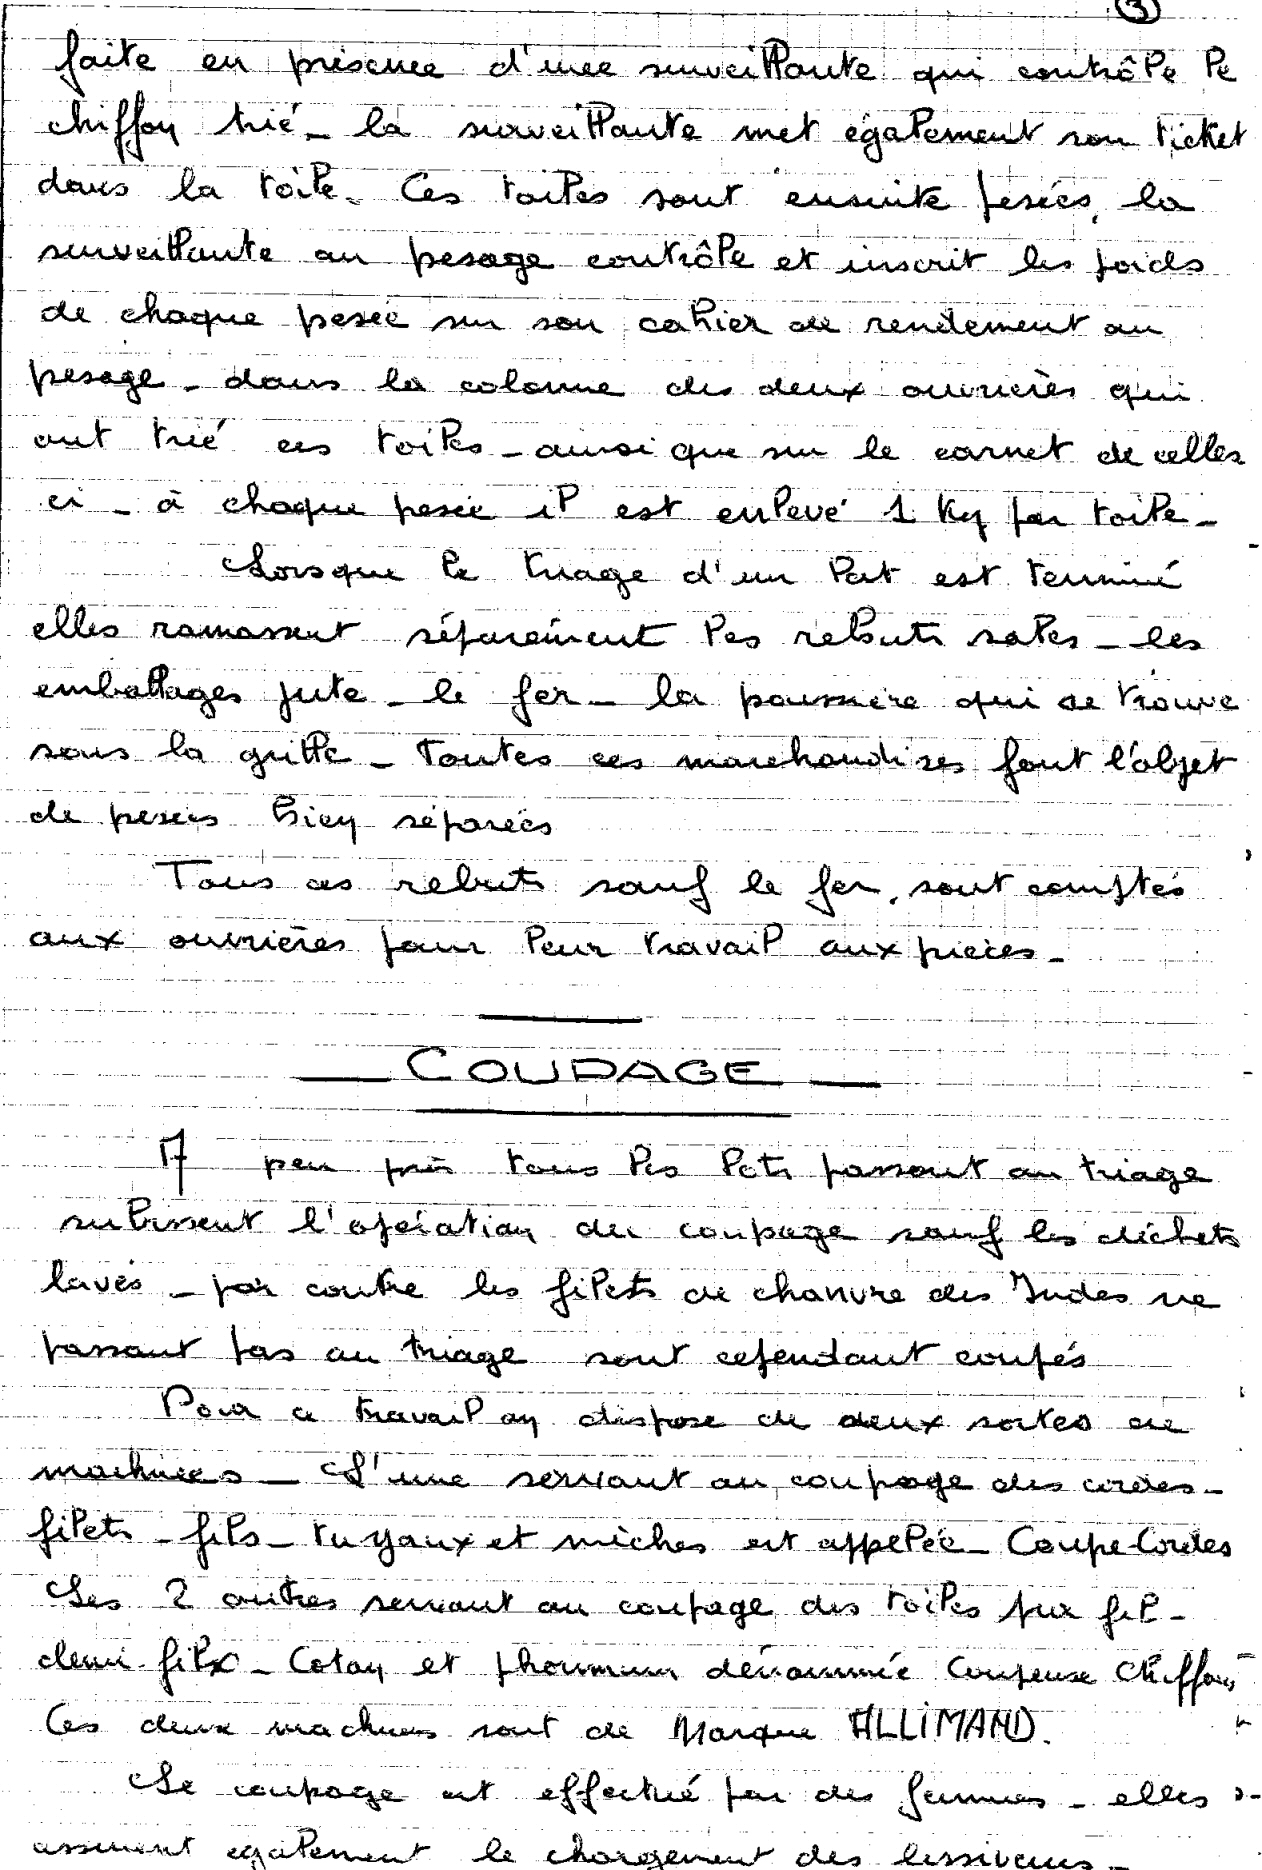 ③
faite en présence d'une surveillante qui contrôle le
chiffon trié _ la surveillante met également son ticket
dans la toile. Ces toiles sont ensuite pesées, la
surveillante au pesage contrôle et inscrit les poids
de chaque pesée sur son cahier de rendement au
pesage _ dans la colonne des deux ouvrières qui
ont trié ces toiles _ ainsi que sur le carnet de celles
ci _ à chaque pesée il est enlevé 1 Kg par toile _
Lorsque le triage d'un lot est terminé
elles ramassent séparément les rebuts sales _ les
emballages jute _ le fer _ la poussière qui se trouve
sous la grille _ Toutes ces marchandises font l'objet
de pesées bien séparées
Tous ces rebuts sauf le fer, sont comptés
aux ouvrières pour leur travail aux pièces _
_ COUPAGE _
A peu près tous les lots passant au triage
subissent l'opération du coupage sauf les déchets
lavés _ par contre les filets de chanvre des Indes ne
passant pas au triage sont cependant coupés
Pour ce travail on dispose de deux sortes de
machines _ L'une servant au coupage des cordes _
filets _ fils _ tuyaux et mèches est appelée _ Coupe-Cordes
Les 2 autres servant au coupage des toiles pur fil _
demi fil _ Coton et dénommée Coupeuse Chiffons
Ces deux machines sont de Marque ALLIMAND.
Le coupage est effectué par des femmes _ elles
assurent également le chargement des lessiveurs _